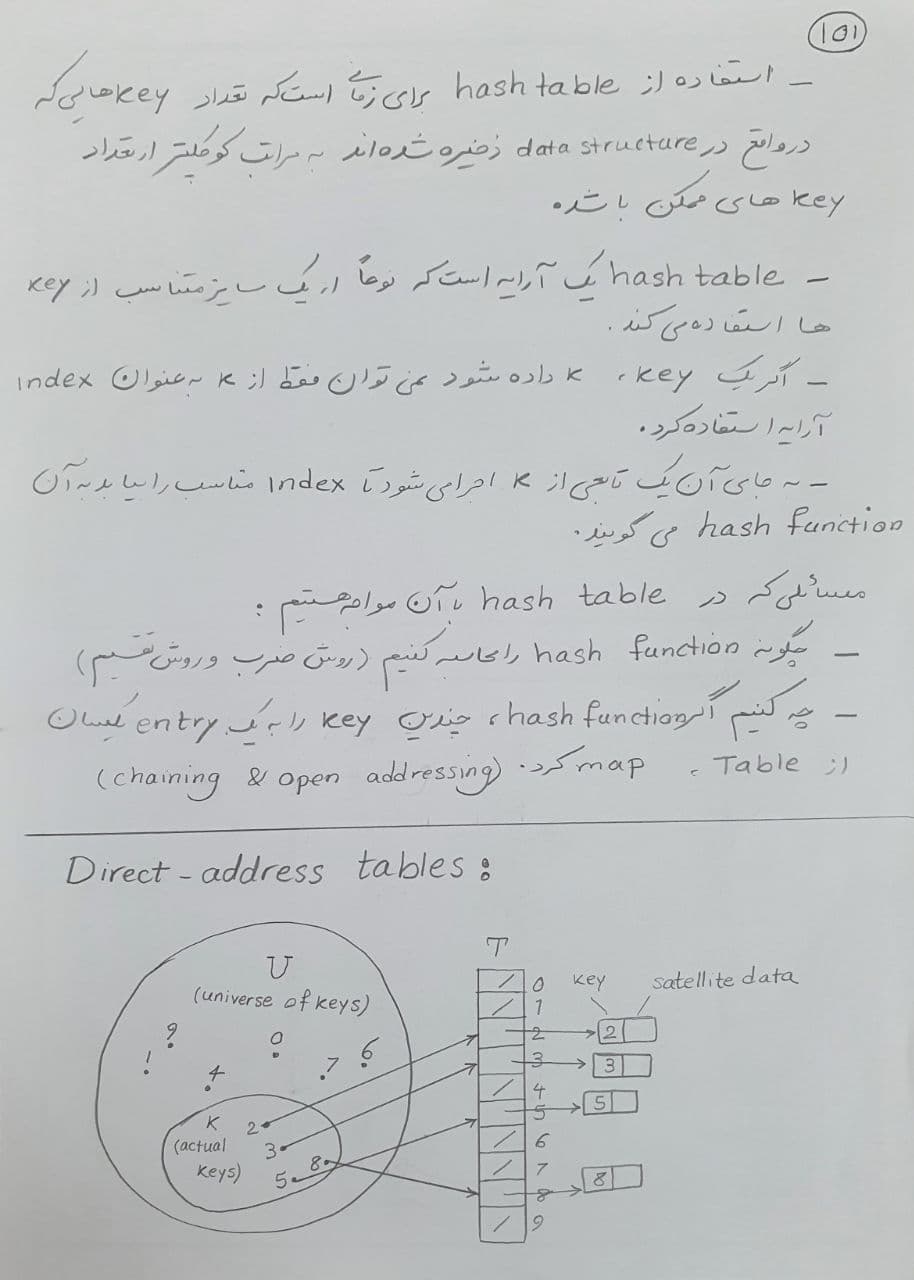 ۱۵۱
- استفاده از hash table برای زمانی است که تعداد key هایی که
در واقع در data structure ذخیره شده‌اند به مراتب کوچکتر از تعداد
key های ممکن باشد.
- hash table یک آرایه است که نوعاً از یک سایز متناسب از key
ها استفاده می کند.
- اگر یک key، k داده شود نمی توان فقط از k به عنوان index
آرایه استفاده کرد.
- به جای آن یک تابعی از k اجرا می شود تا index مناسب را بیابد به آن
hash function می گویند.
مسائلی که در hash table با آن مواجه هستیم :
- چگونه hash function را محاسبه کنیم (روش ضرب و روش تقسیم)
- چه کنیم اگر hash function، چندین key را به یک entry یکسان
از Table، map کرد. (chaining & open addressing)
Direct - address tables :
U
(universe of keys)
9
0
1
7
6
4
K
(actual
keys)
2
3
8
5
T
0
1
2
3
4
5
6
7
8
9
key
satellite data
2
3
5
8